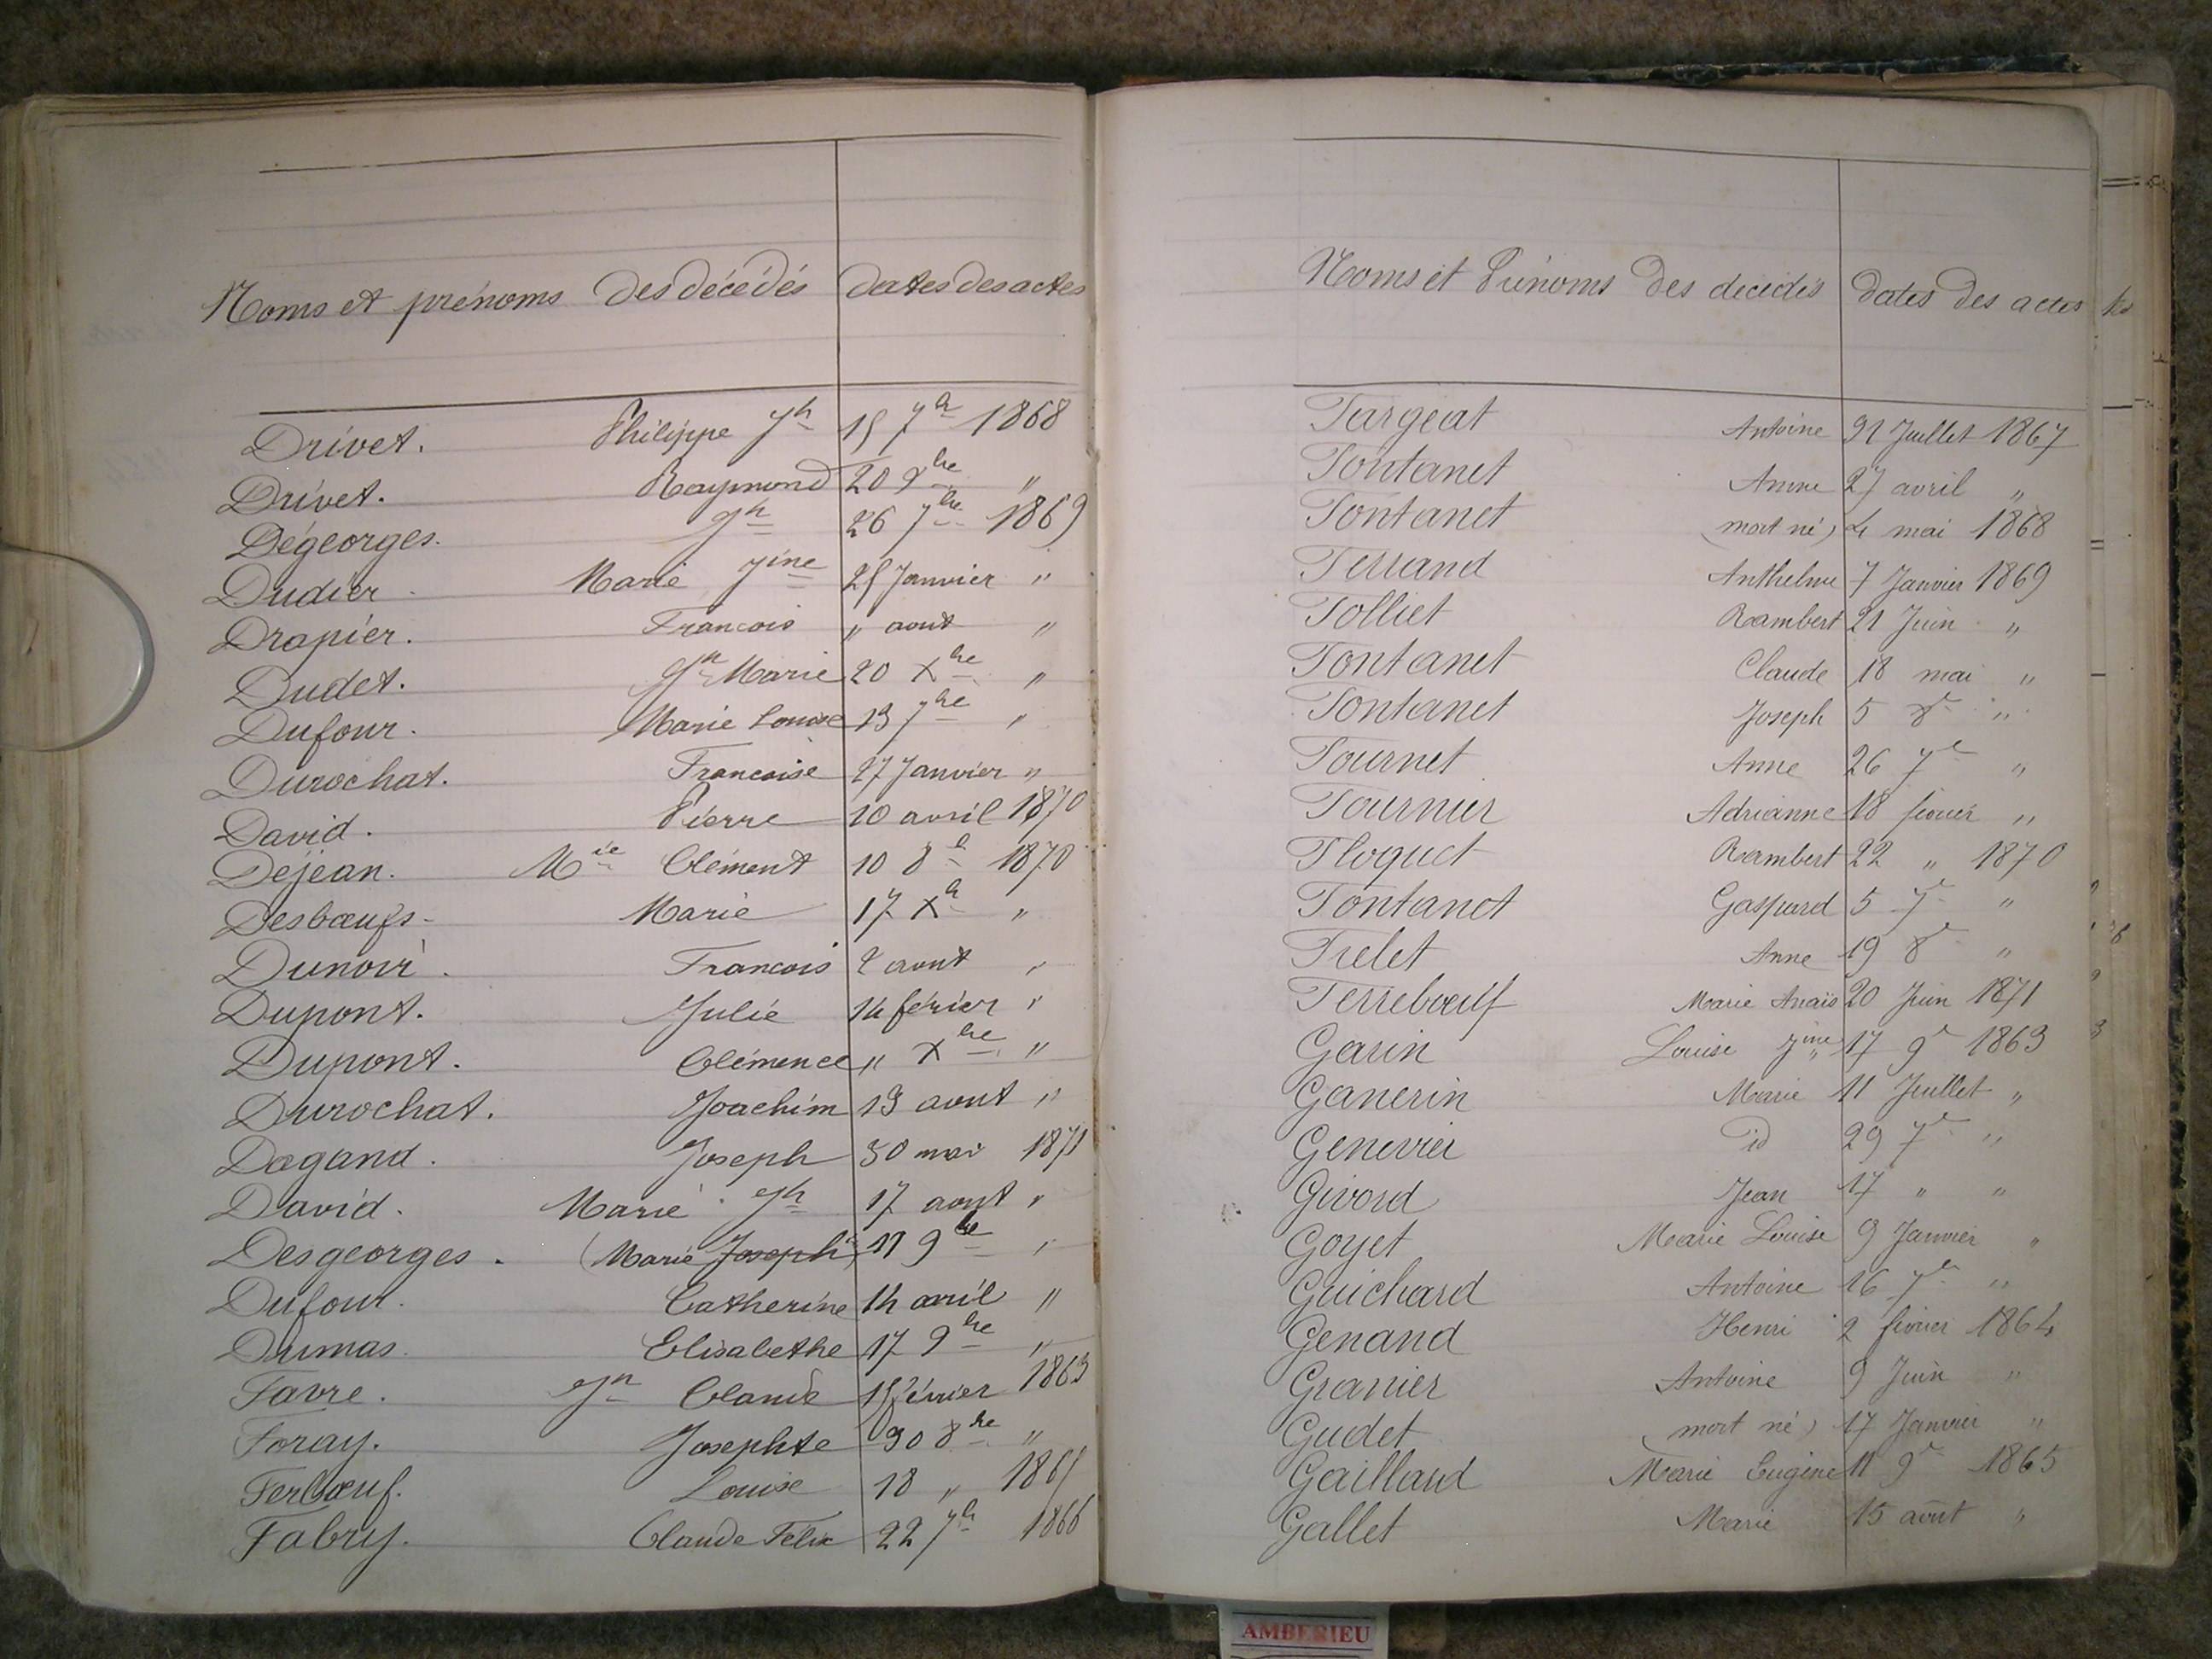 Noms et prénoms des décédés dates des actes
Drivet. Philippe Jh 15 7h 1868
Drivet. Raymond 20 9bre "
Dégeorges. Jh 26 7bre 1869
Dudier Marie Jine 25 Janvier "
Drapier. Francois " aout "
Dudet. Jn Marie 20 Xbre "
Dufour. Marie Louise 13 7bre "
Durochat. Francoise 27 Janvier "
David. Pierre 10 avril 1870
Déjean. Mie Clément 10 8b 1870
Desbœufs - Marie 17 Xb "
Dunoir. Francois 2 aout "
Dupont. Julie 14 férier "
Dupont. Clémence " Xbre "
Durochat. Joachim 13 aout "
Dagand. Joseph 30 mai 1871
David. Marie Jh 17 aout "
Desgeorges. (Marie Joseph) 11 9bre "
Dufour. Catherine 14 avril "
Dumas. Elisabethe 17 9bre "
Favre. Jn Claude 15 février 1863
Foray. Josephte 30 8bre "
Ferbœuf. Louise 18 " 1865
Fabry. Claude Félix 22 7b 1866
Noms et Prénoms des décédés dates des actes
Fargeat Antoine 31 Juillet 1867
Fontanet Anne 27 avril "
Fontanet (mort né) 4 mai 1868
Ferrand Anthelme 7 Janvier 1869
Folliet Rambert 21 Juin "
Fontanet Claude 18 mai "
Fontanet Joseph 5 8e "
Fournet Anne 26 7e "
Fournier Adrianne 18 février "
Floquet Rambert 22 " 1870
Fontanet Gaspard 5 7e "
Frelet Anne 19 8e "
Ferrebœuf Marie Anaïs 20 Juin 1871
Garin Louise Jine 17 9e 1863
Ganerin Marie 11 Juillet "
Genevrier id 29 7e "
Givord Jean 17 " "
Goyet Marie Louise 9 Janvier "
Guichard Antoine 16 7e "
Genand Henri 2 février 1864
Granier Antoine 9 Juin "
Gudet (mort né) 17 Janvier "
Gaillard Marie Eugène 11 9e 1865
Gallet Marie 15 août "
AMBERIEU